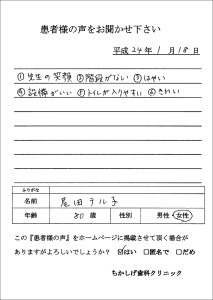 患者様の声をお聞かせ下さい
平成24年1月18日
①先生の笑顔 ②階段がない ③はやい
④設備がいい ⑤トイレが入りやすい ⑥きれい
ふりがな
名前 尾田テル子
年齢 80歳 性別 男性・女性
この『患者様の声』をホームページに掲載させて頂く場合が
ありますがよろしいでしょうか？ ☑はい □匿名で □だめ
ちかしげ歯科クリニック